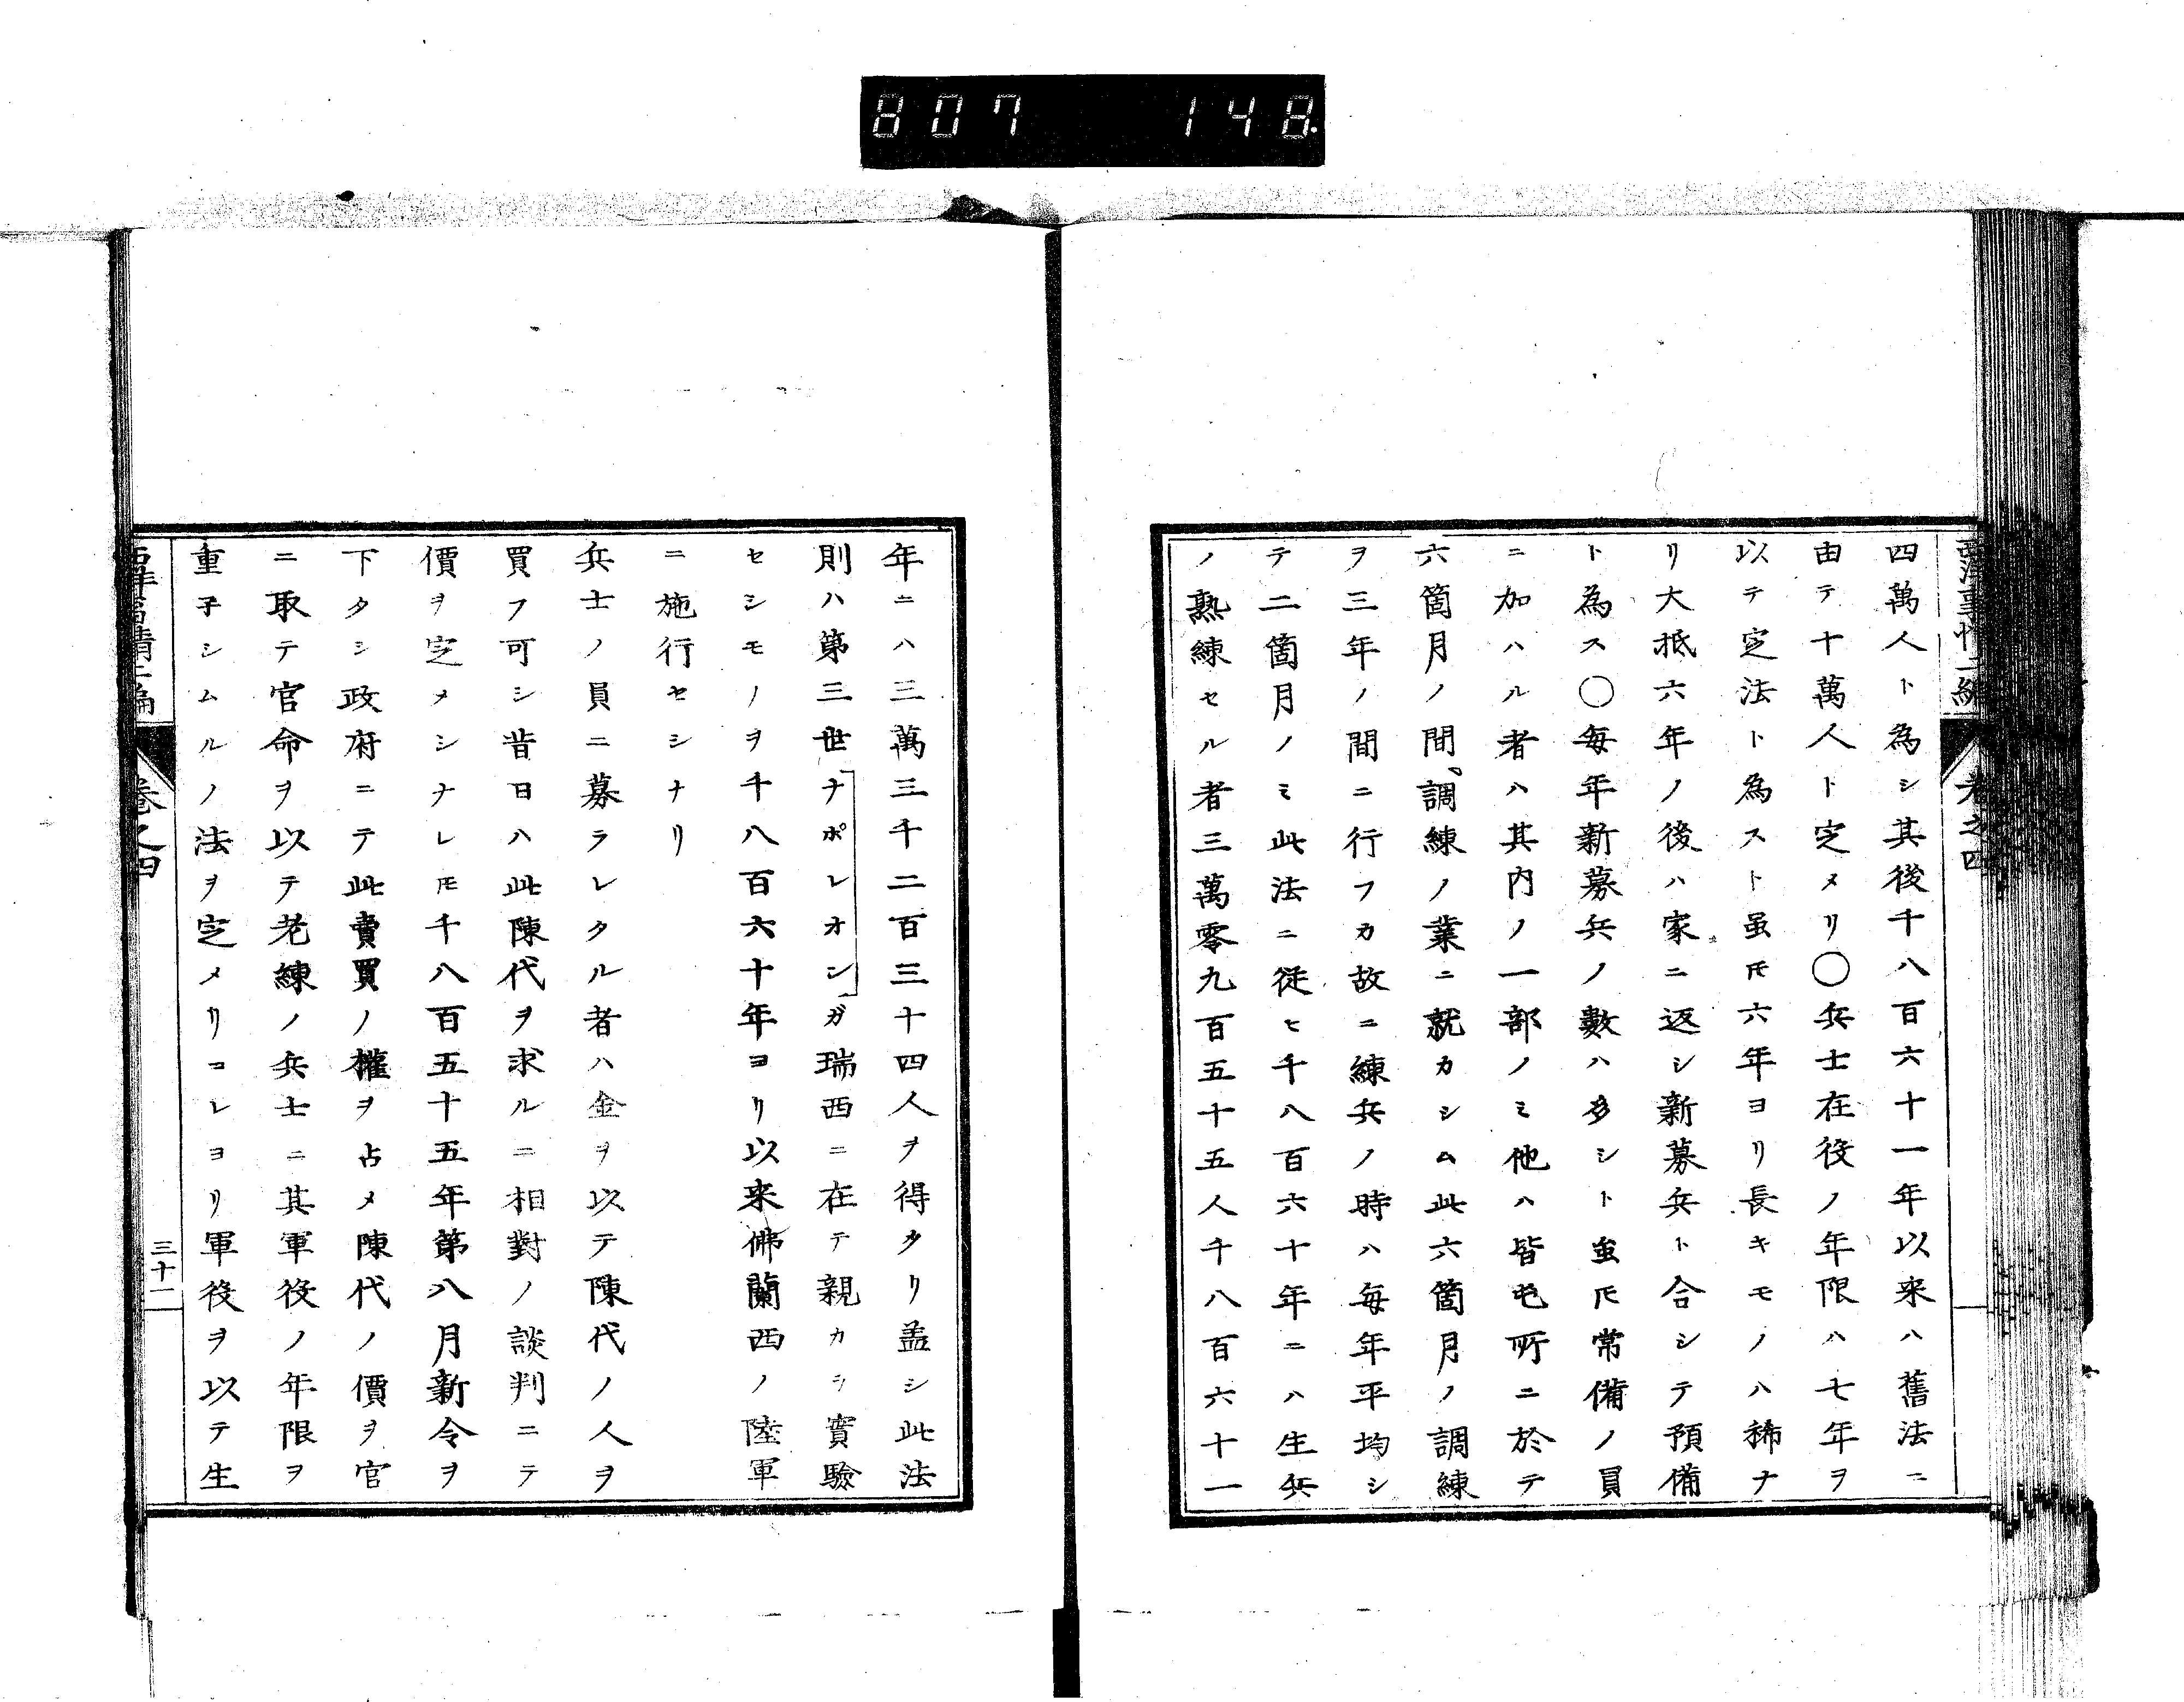 807 148
四萬人ト為シ其後千八百六十一年以来ハ舊法ニ
由テ十萬人ト定メリ○兵士在役ノ年限ハ七年ヲ
以テ定法ト為スト虽𪜈六年ヨリ長キモノハ稀ナ
リ大抵六年ノ後ハ家ニ返シ新募兵ト合シテ預備
ト為ス○毎年新募兵ノ數ハ多シト虽𪜈常備ノ員
ニ加ハル者ハ其内ノ一部ノミ他ハ皆屯所ニ於テ
六箇月ノ間調練ノ業ニ就カシム此六箇月ノ調練
ヲ三年ノ間ニ行フカ故ニ練兵ノ時ハ毎年平均シ
テ二箇月ノミ此法ニ従ヒ千八百六十年ニハ生兵
ノ熟練セル者三萬零九百五十五人千八百六十一
年ニハ三萬三千二百三十四人ヲ得タリ盖シ此法
則ハ第三世ナポレオンガ瑞西ニ在テ親カラ實驗
セシモノヲ千八百六十年ヨリ以来佛蘭西ノ陸軍
ニ施行セシナリ
兵士ノ員ニ募ラレタル者ハ金ヲ以テ陳代ノ人ヲ
買フ可シ昔日ハ此陳代ヲ求ルニ相對ノ談判ニテ
價ヲ定メシナレ𪜈千八百五十五年第八月新令ヲ
下タシ政府ニテ此賣買ノ權ヲ占メ陳代ノ價ヲ官
ニ取テ官命ヲ以テ老練ノ兵士ニ其軍役ノ年限ヲ
重子シムルノ法ヲ定メリコレヨリ軍役ヲ以テ生
卷之四
三十一